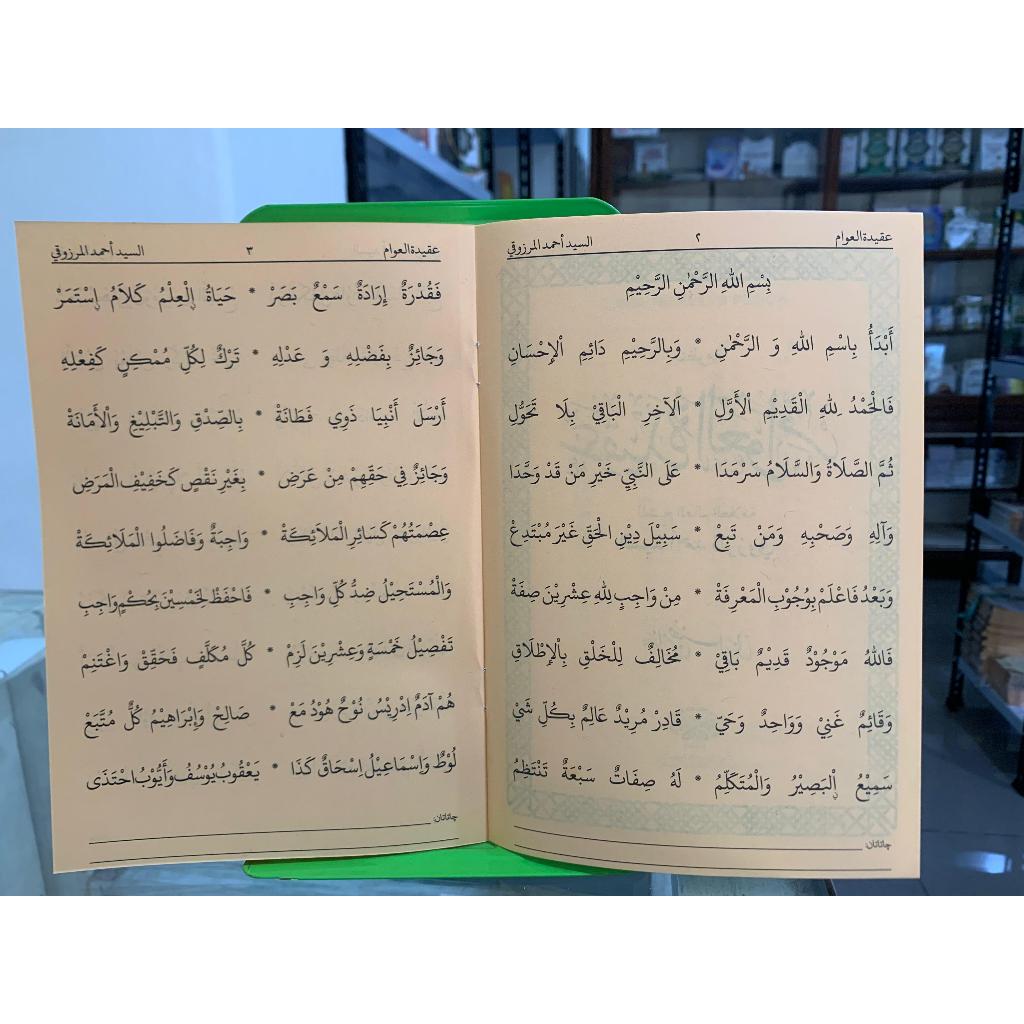 عقيدة العوام ٢ السيد أحمد المرزوقي
بِسْمِ اللهِ الرَّحْمٰنِ الرَّحِيْمِ
أَبْدَأُ بِاسْمِ اللهِ وَ الرَّحْمٰنِ * وَبِالرَّحِيْمِ دَائِمِ الْإِحْسَانِ
فَالْحَمْدُ لِلهِ الْقَدِيْمِ الْأَوَّلِ * اَلْآخِرِ الْبَاقِيْ بِلَا تَحَوُّلِ
ثُمَّ الصَّلَاةُ وَالسَّلَامُ سَرْمَدَا * عَلَى النَّبِيِّ خَيْرِ مَنْ قَدْ وَحَّدَا
وَآلِهِ وَصَحْبِهِ وَمَنْ تَبِعْ * سَبِيْلَ دِيْنِ الْحَقِّ غَيْرَ مُبْتَدِعْ
وَبَعْدُ فَاعْلَمْ بِوُجُوْبِ الْمَعْرِفَةْ * مِنْ وَاجِبٍ لِلهِ عِشْرِيْنَ صِفَةْ
فَاللهُ مَوْجُوْدٌ قَدِيْمٌ بَاقِيْ * مُخَالِفٌ لِلْخَلْقِ بِالْإِطْلَاقِ
وَقَائِمٌ غَنِيْ وَوَاحِدٌ وَحَيّ * قَادِرْ مُرِيْدٌ عَالِمٌ بِكُلِّ شَيْ
سَمِيْعُ اِلْبَصِيْرُ وَالْمُتَكَلِّمُ * لَهُ صِفَاتٌ سَبْعَةٌ تَنْتَظِمُ
چاتاتان:
عقيدة العوام ٣ السيد أحمد المرزوقي
فَقُدْرَةٌ إِرَادَةٌ سَمْعٌ بَصَرْ * حَيَاةُ اِلْعِلْمُ كَلَامُ اِسْتَمَرْ
وَجَائِزٌ بِفَضْلِهِ وَ عَدْلِهِ * تَرْكٌ لِكُلِّ مُمْكِنٍ كَفِعْلِهِ
أَرْسَلَ أَنْبِيَا ذَوِي فَطَانَةْ * بِالصِّدْقِ وَالتَّبْلِيْغِ وَالْأَمَانَةْ
وَجَائِزٌ فِي حَقِّهِمْ مِنْ عَرَضِ * بِغَيْرِ نَقْصٍ كَخَفِيْفِ الْمَرَضِ
عِصْمَتُهُمْ كَسَائِرِ الْمَلَائِكَةْ * وَاجِبَةٌ وَفَاضَلُوا الْمَلَائِكَةْ
وَالْمُسْتَحِيْلُ ضِدُّ كُلِّ وَاجِبِ * فَاحْفَظْ لِخَمْسِيْنَ بِحُكْمٍ وَاجِبِ
تَفْصِيْلُ خَمْسَةٍ وَعِشْرِيْنَ لَزِمْ * كُلَّ مُكَلَّفٍ فَحَقِّقْ وَاغْتَنِمْ
هُمْ آدَمٌ اِدْرِيْسُ نُوْحٌ هُوْدُ مَعْ * صَالِحْ وَإِبْرَاهِيْمُ كُلٌّ مُتَّبَعْ
لُوْطٌ وَاِسْمَاعِيْلُ اِسْحَاقٌ كَذَا * يَعْقُوْبُ يُوْسُفُ وَأَيُّوْبُ احْتَذَى
چاتاتان: